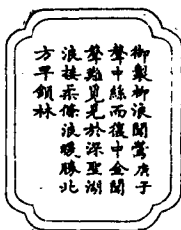 御製柳浪聞鶯庚子
聲中絲而復中金聞
聲難見見於深聖湖
浪接柔條浪暖勝北
方早領林